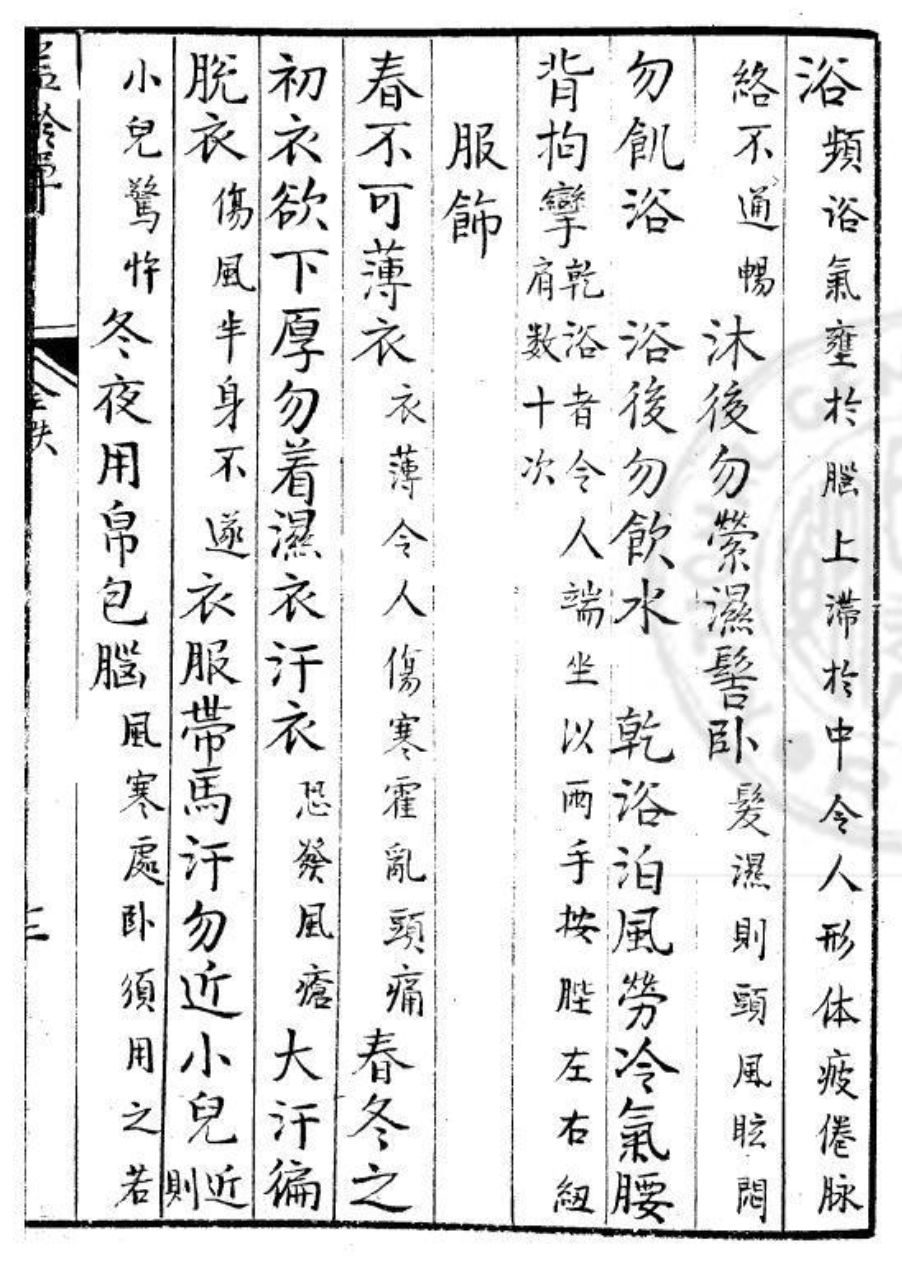 浴頻浴氣壅於腦上滯於中令人形体疲倦脉
絡不通暢沐後勿縈濕髻卧髮濕則頭風眩悶
勿飢浴浴後勿飲水乾浴泊風勞冷氣腰
背拘攣乾浴者令人端坐以兩手按䏶左右紐肩数十次
服飾
春不可薄衣衣薄令人傷寒霍亂頭痛春冬之
初衣欲下厚勿着濕衣汗衣恐發風瘡大汗偏
脫衣傷風半身不遂衣服帶馬汗勿近小兒近則
小兒驚忤冬夜用帛包腦風寒處卧須用之若